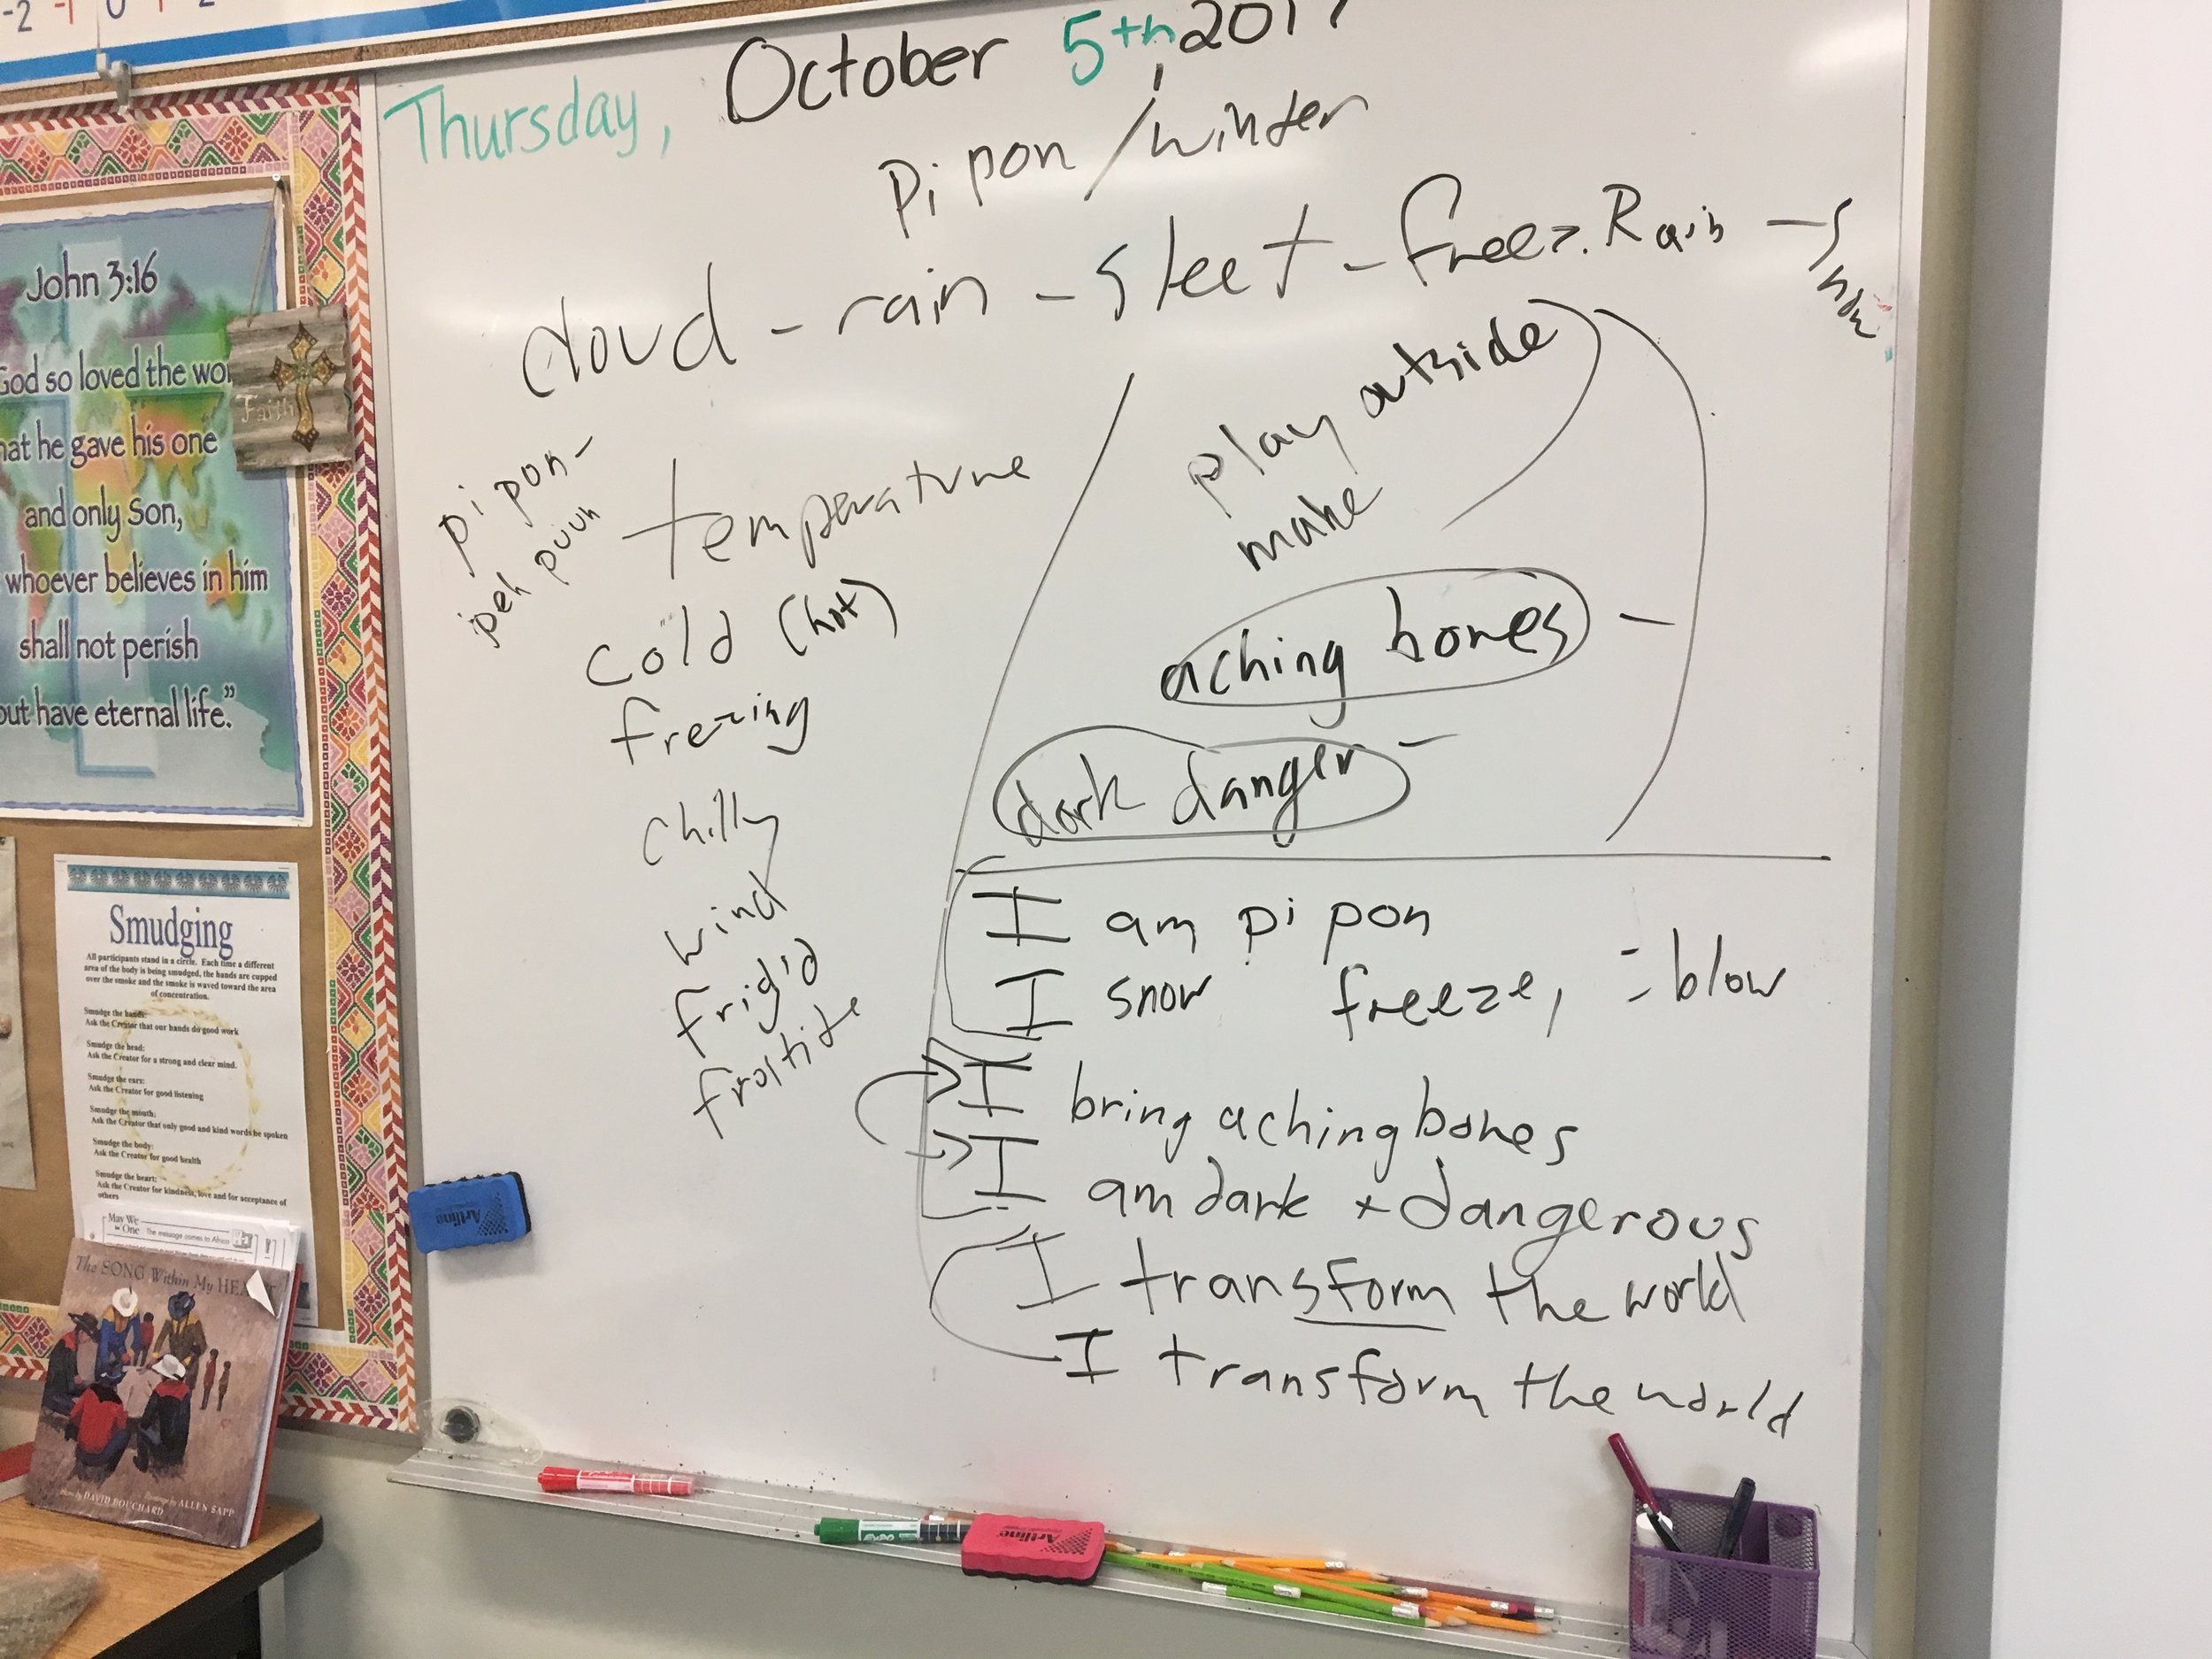 -2 -1 0 1 2
Thursday, October 5th, 2017
pipon/winter
cloud - rain - sleet - freez. Rain - snow
pipon-
peh puun
temperature
cold (hot)
frezing
chilly
wind
frigid
frostite
play outside
make
aching bones -
dark danger -
I am pipon
I snow freeze, blow
I bring aching bones
I am dark + dangerous
I transform the world
I transform the world
John 3:16
God so loved the wor
hat he gave his one
and only Son,
whoever believes in him
shall not perish
but have eternal life."
Faith
Smudging
All participants stand in a circle. Each time a different
area of the body is being smudged, the hands are cupped
over the smoke and the smoke is waved toward the area
of concentration.
Smudge the hands:
Ask the Creator that our hands do good work
Smudge the head:
Ask the Creator for a strong and clear mind.
Smudge the ears:
Ask the Creator for good listening
Smudge the mouth:
Ask the Creator that only good and kind words be spoken
Smudge the body:
Ask the Creator for good health
Smudge the heart:
Ask the Creator for kindness, love and for acceptance of
others
May We
One
The message comes to Africa
The SONG Within My HEART
DAVID BOUCHARD
ALLEN SAPP
Artline
Artline